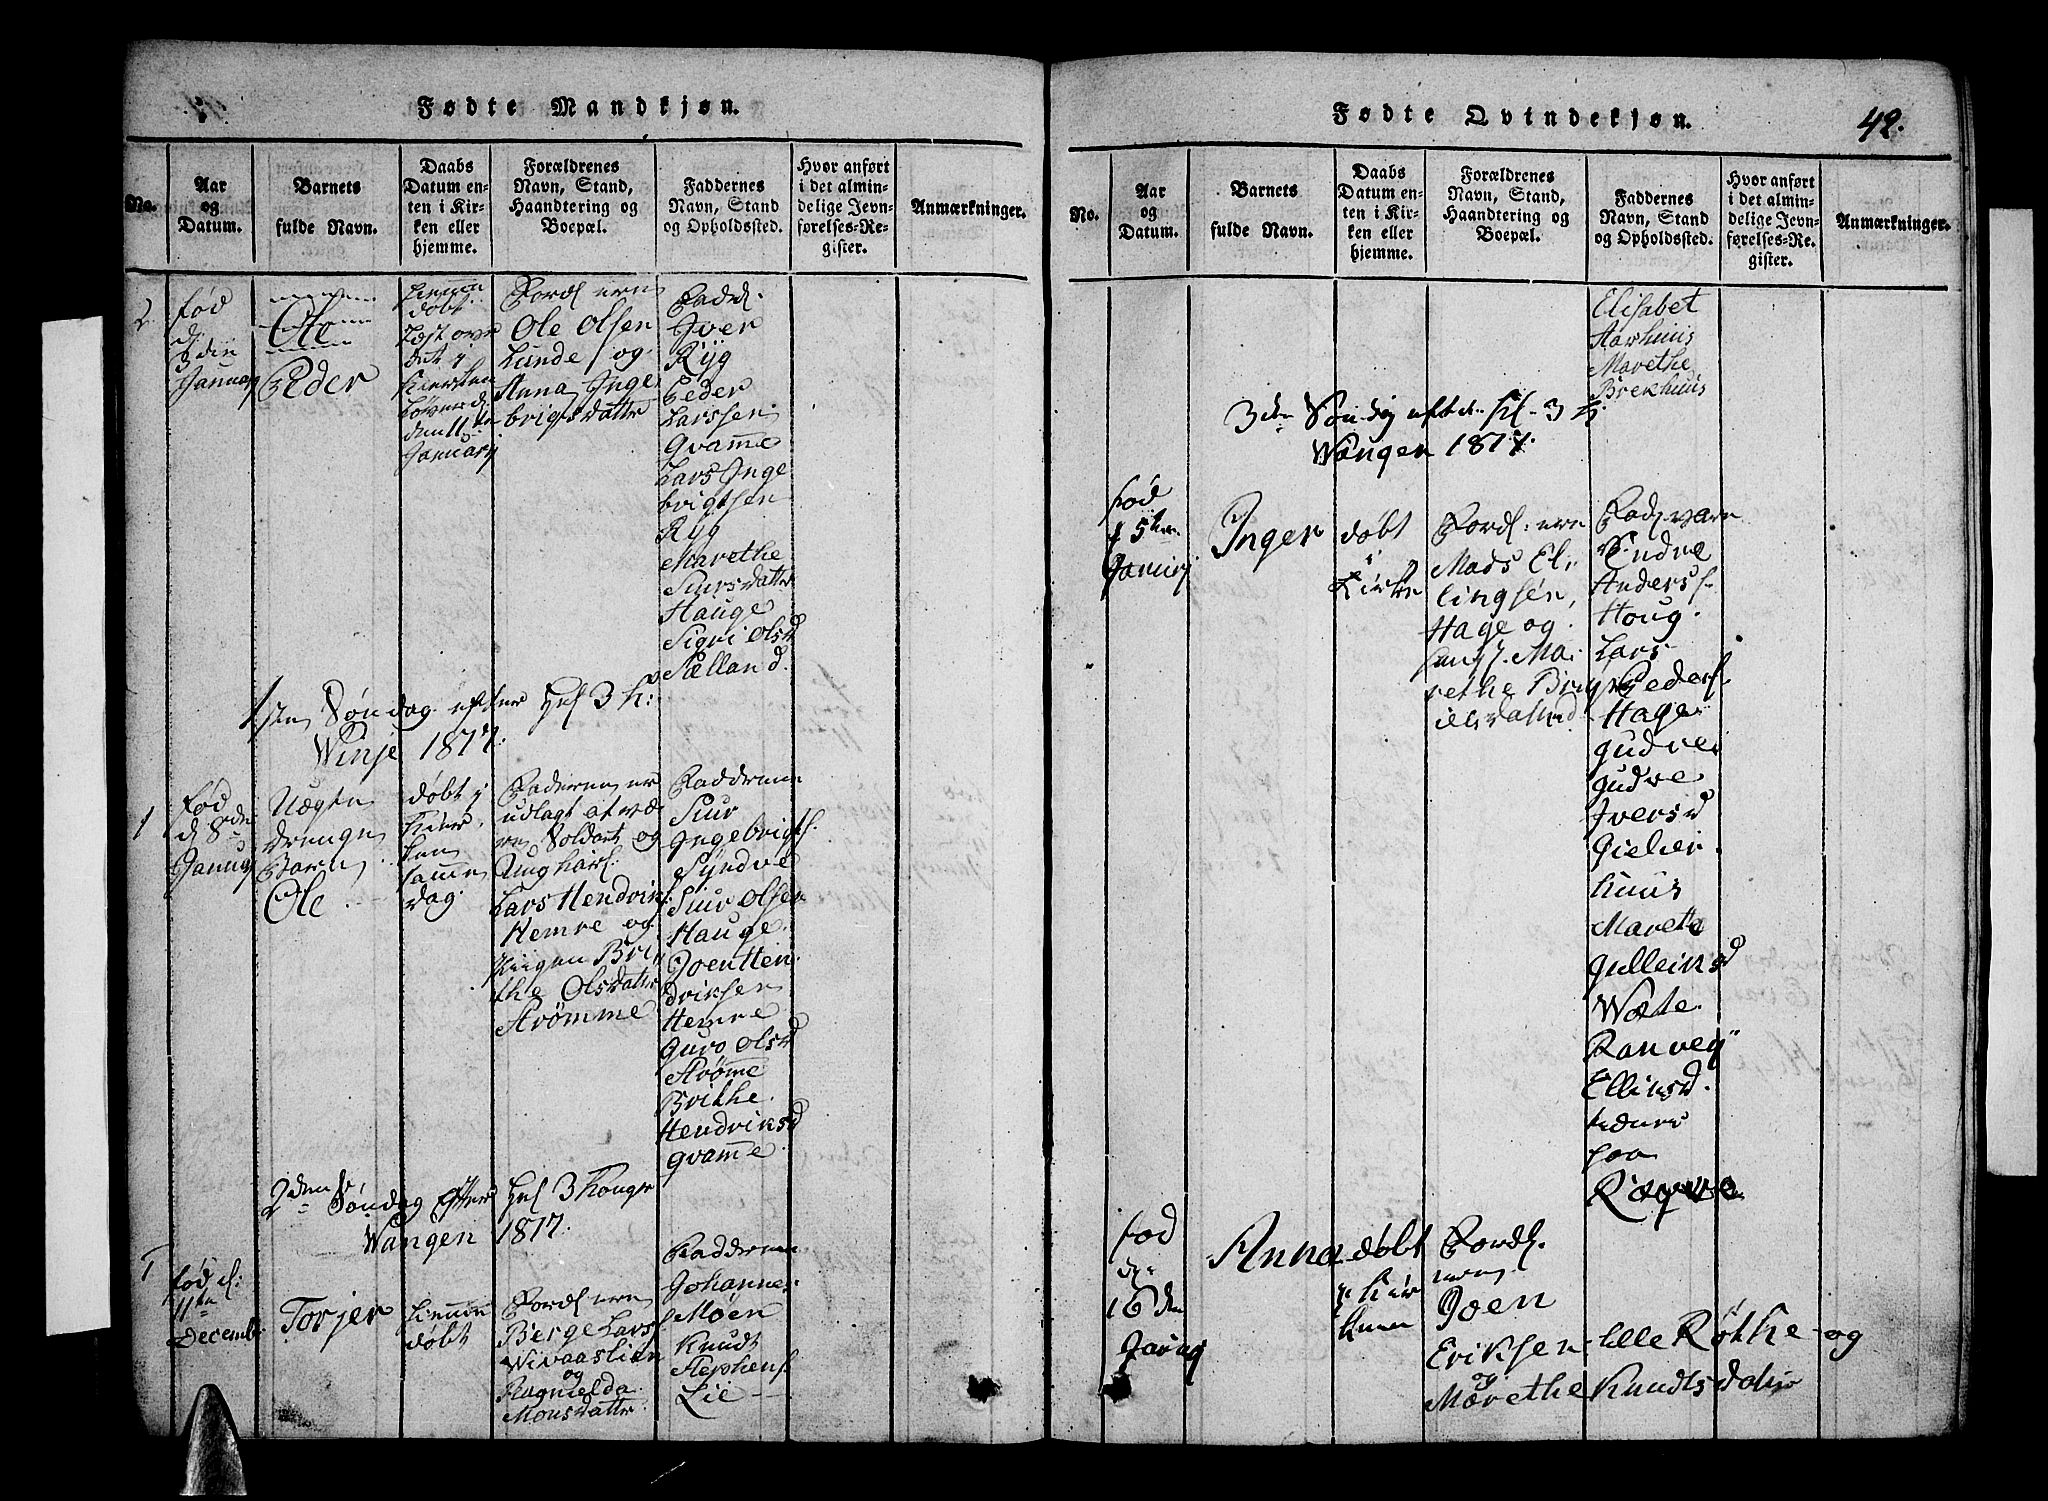 Fødte Mandkjøn.
No.
Aar
og
Datum.
Barnets
fulde Navn.
Daabs
Datum en-
ten i Kir-
ken eller
hjemme.
Forældrenes
Navn, Stand,
Haandtering og
Boepæl.
Faddernes
Navn, Stand
og Opholdssted.
Hvor anført
i det almin-
delige Jevn-
førelses-Re-
gister.
Anmærkninger.
2
fød
d
3die
Januar
Ole
Peder
hiemme
døbt
i
Kierken
den 11te
January
Ole Olsen
Lunde og
Anna Inge
brigtsdatte
Fadd.
Iver
Ryg
Peder
Larssen
Qvamme
Lars Inge
brigtsen
Ryg
Marethe
Siursdatte
Hauge
Sigri Olsd
Sælland.
1ste Søndag efter Hel 3 K:
Winje 1817.
1
fød
d 8de
January
Uægte
drenge
Barn
Ole
døbt i
Kier
ken
samme
dag.
Faderen er
udlagt at væ
re Soldat og
Ungkarl
Lars Hendrik
Hemre og
Pigen Bri
the Olsdatte
Strømme
Faddrene
Siur
Ingebrigts.
Syndve
Siur Olsen
Hauge.
Joen Hen
driksen
Hemre
Guro Olsd
Strømme
Brithe
Hendriksd
Qvamme
2den Søndag efter Hel 3 Konger
Wangen 1817.
1
fød d:
11te
December
Torjer
hiemme
døbt
Berge Lars
Wivaastien
og
Ragnielda
Monsdatte
Faddrene
Johannes
Møen
Knudt
Stephens
Lie
Fødte Qvindekjøn.
42.
No.
Aar
og
Datum.
Barnets
fulde Navn.
Daabs
Datum en-
ten i Kir-
ken eller
hjemme.
Forældrenes
Navn, Stand,
Haandtering og
Boepæl.
Faddernes
Navn, Stand
og Opholdssted.
Hvor anført
i det almin-
delige Jevn-
førelses-Re-
gister.
Anmærkninger.
Elisabet
Aarhuus
Marethe
Brekhuus
3die Søndag efter Hl. 3 K.
Wangen 1817.
fød
Inger
døbt
i
Kirke
Mads El
lingsen,
Hage og
Fad. vare
Endre
Anders
Houg.
Lars
Peders.
Hage
Gudve
Gudve
Iversd
Gielier
huus
Marete
Gulleiksd
Wæte.
Ranvei
Ellinsd.
Røqve
fød
d.
16de
Anna
døbt
i Kir
Joen
Eriksen Lille Røthe og
Marethe Knudtsdater